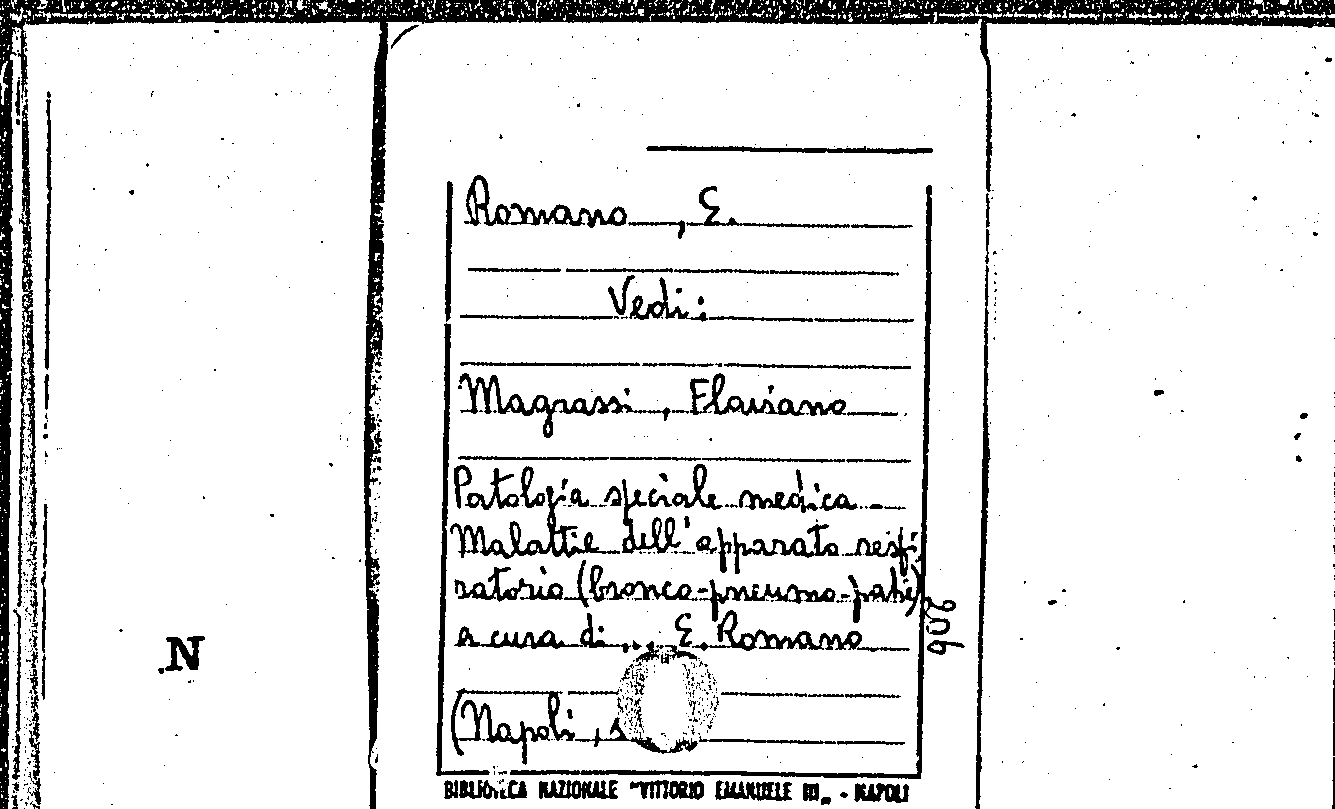 Romano, E.
Vedi:
Magrassi, Flaviano
Patologia speciale medica -
Malattie dell'apparato respi
ratorio (bronco-pneumo-patie)
a cura di ... E. Romano
(Napoli, s
906
N
BIBLIOTECA NAZIONALE "VITTORIO EMANUELE III„ - NAPOLI